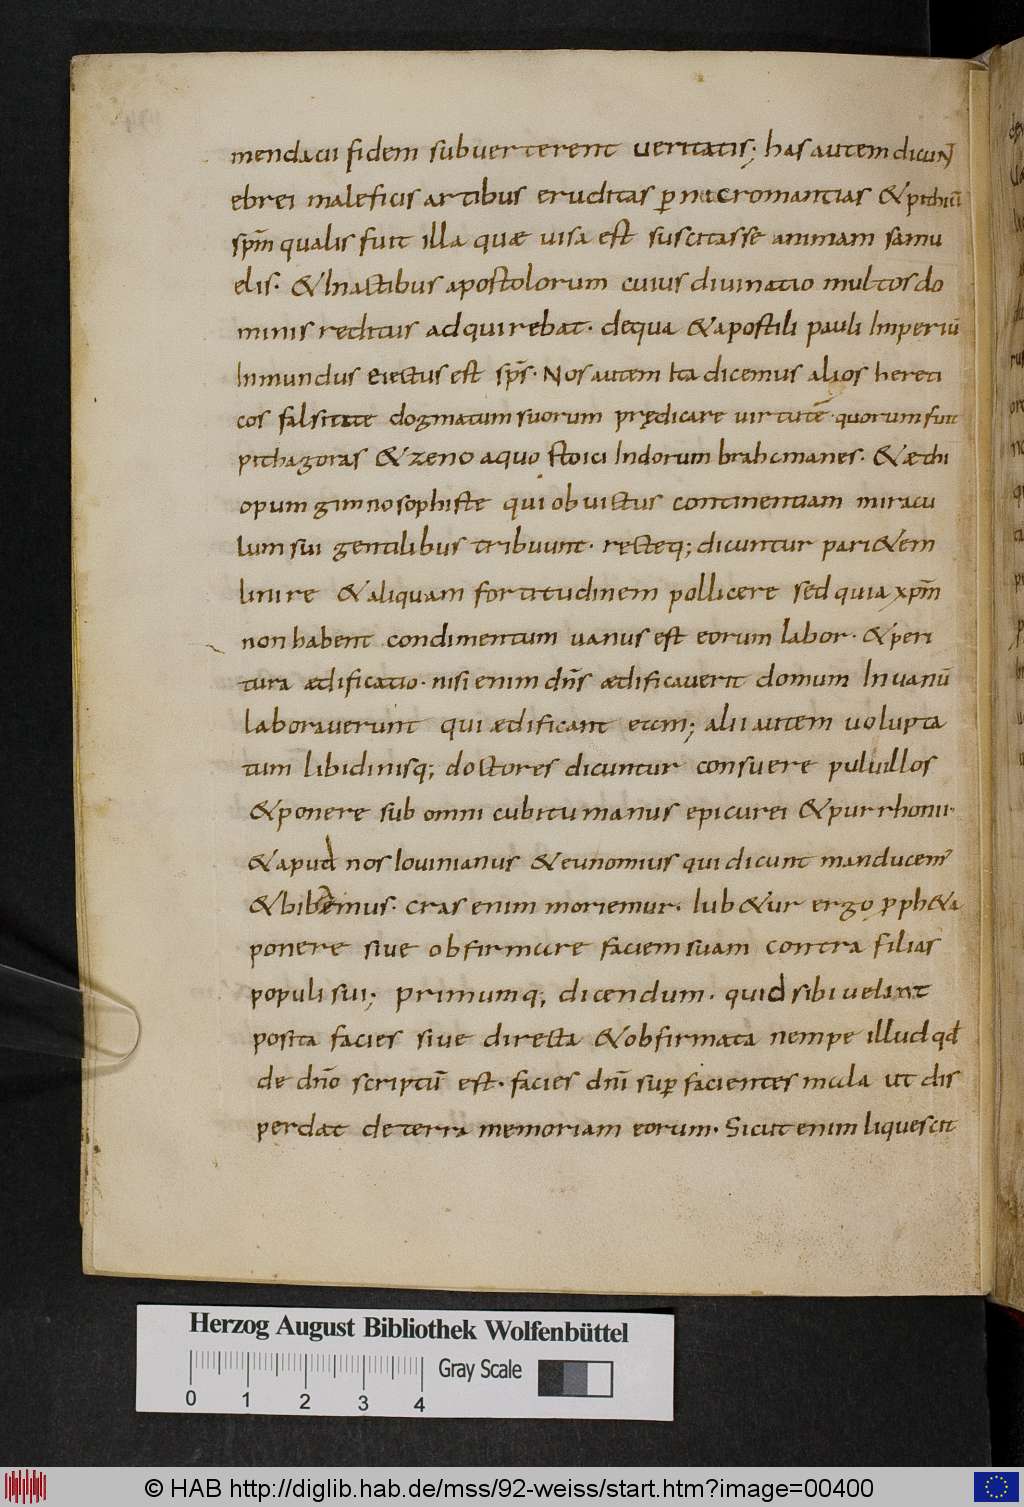 mendacii fidem subuerterent ueritatis; has autem dicunt
ebrei maleficis artibus eruditas p nicromantias &pithicū
spm̄ qualis fuit illa quae uisa est suscitasse animam samu
elis. &Inactibus apostolorum cuius diuinatio multos do
minis reditus adquirebat. dequa &apostili pauli Imperiū
Inmundus eiectus est sps̄. Nos autem Ita dicemus alios hereti
cos falsitate dogmatum suorum prędicare uirtutē. quorum fuit
pithagoras &zeno aquo stoici Indorum brahcmanes. &aethi
opum gimnosophiste qui obuictus continentiam miracu
lum sui gentilibus tribuunt. recteq; dicuntur pari&em
linire &aliquam fortitudinem pollicere sed quia xpm̄
non habent condimentum uanus est eorum labor. &peri
tura aedificatio. nisi enim dn̄s aedificauerit domum Inuanū
laborauerunt qui aedificant eam; alii autem uolupta
tum libidinisq; doctores dicuntur consuere puluillos
&ponere sub omni cubitu manus epicurei &purrhonii.
&apud nos Iouinianus &eunomius qui dicunt manducem'
&bibemus. cras enim moriemur. Iub&ur ergo pph&a
ponere siue obfirmare faciem suam contra filias
populi sui; primumq; dicendum. quid sibi uelint
posita facies siue directa &obfirmata nempe illud qd
de dn̄o scriptū est. facies dn̄i sup facientes mala ut dis
perdat de terra memoriam eorum. Sicut enim liquescit
Herzog August Bibliothek Wolfenbüttel
Gray Scale
0 1 2 3 4
© HAB http://diglib.hab.de/mss/92-weiss/start.htm?image=00400